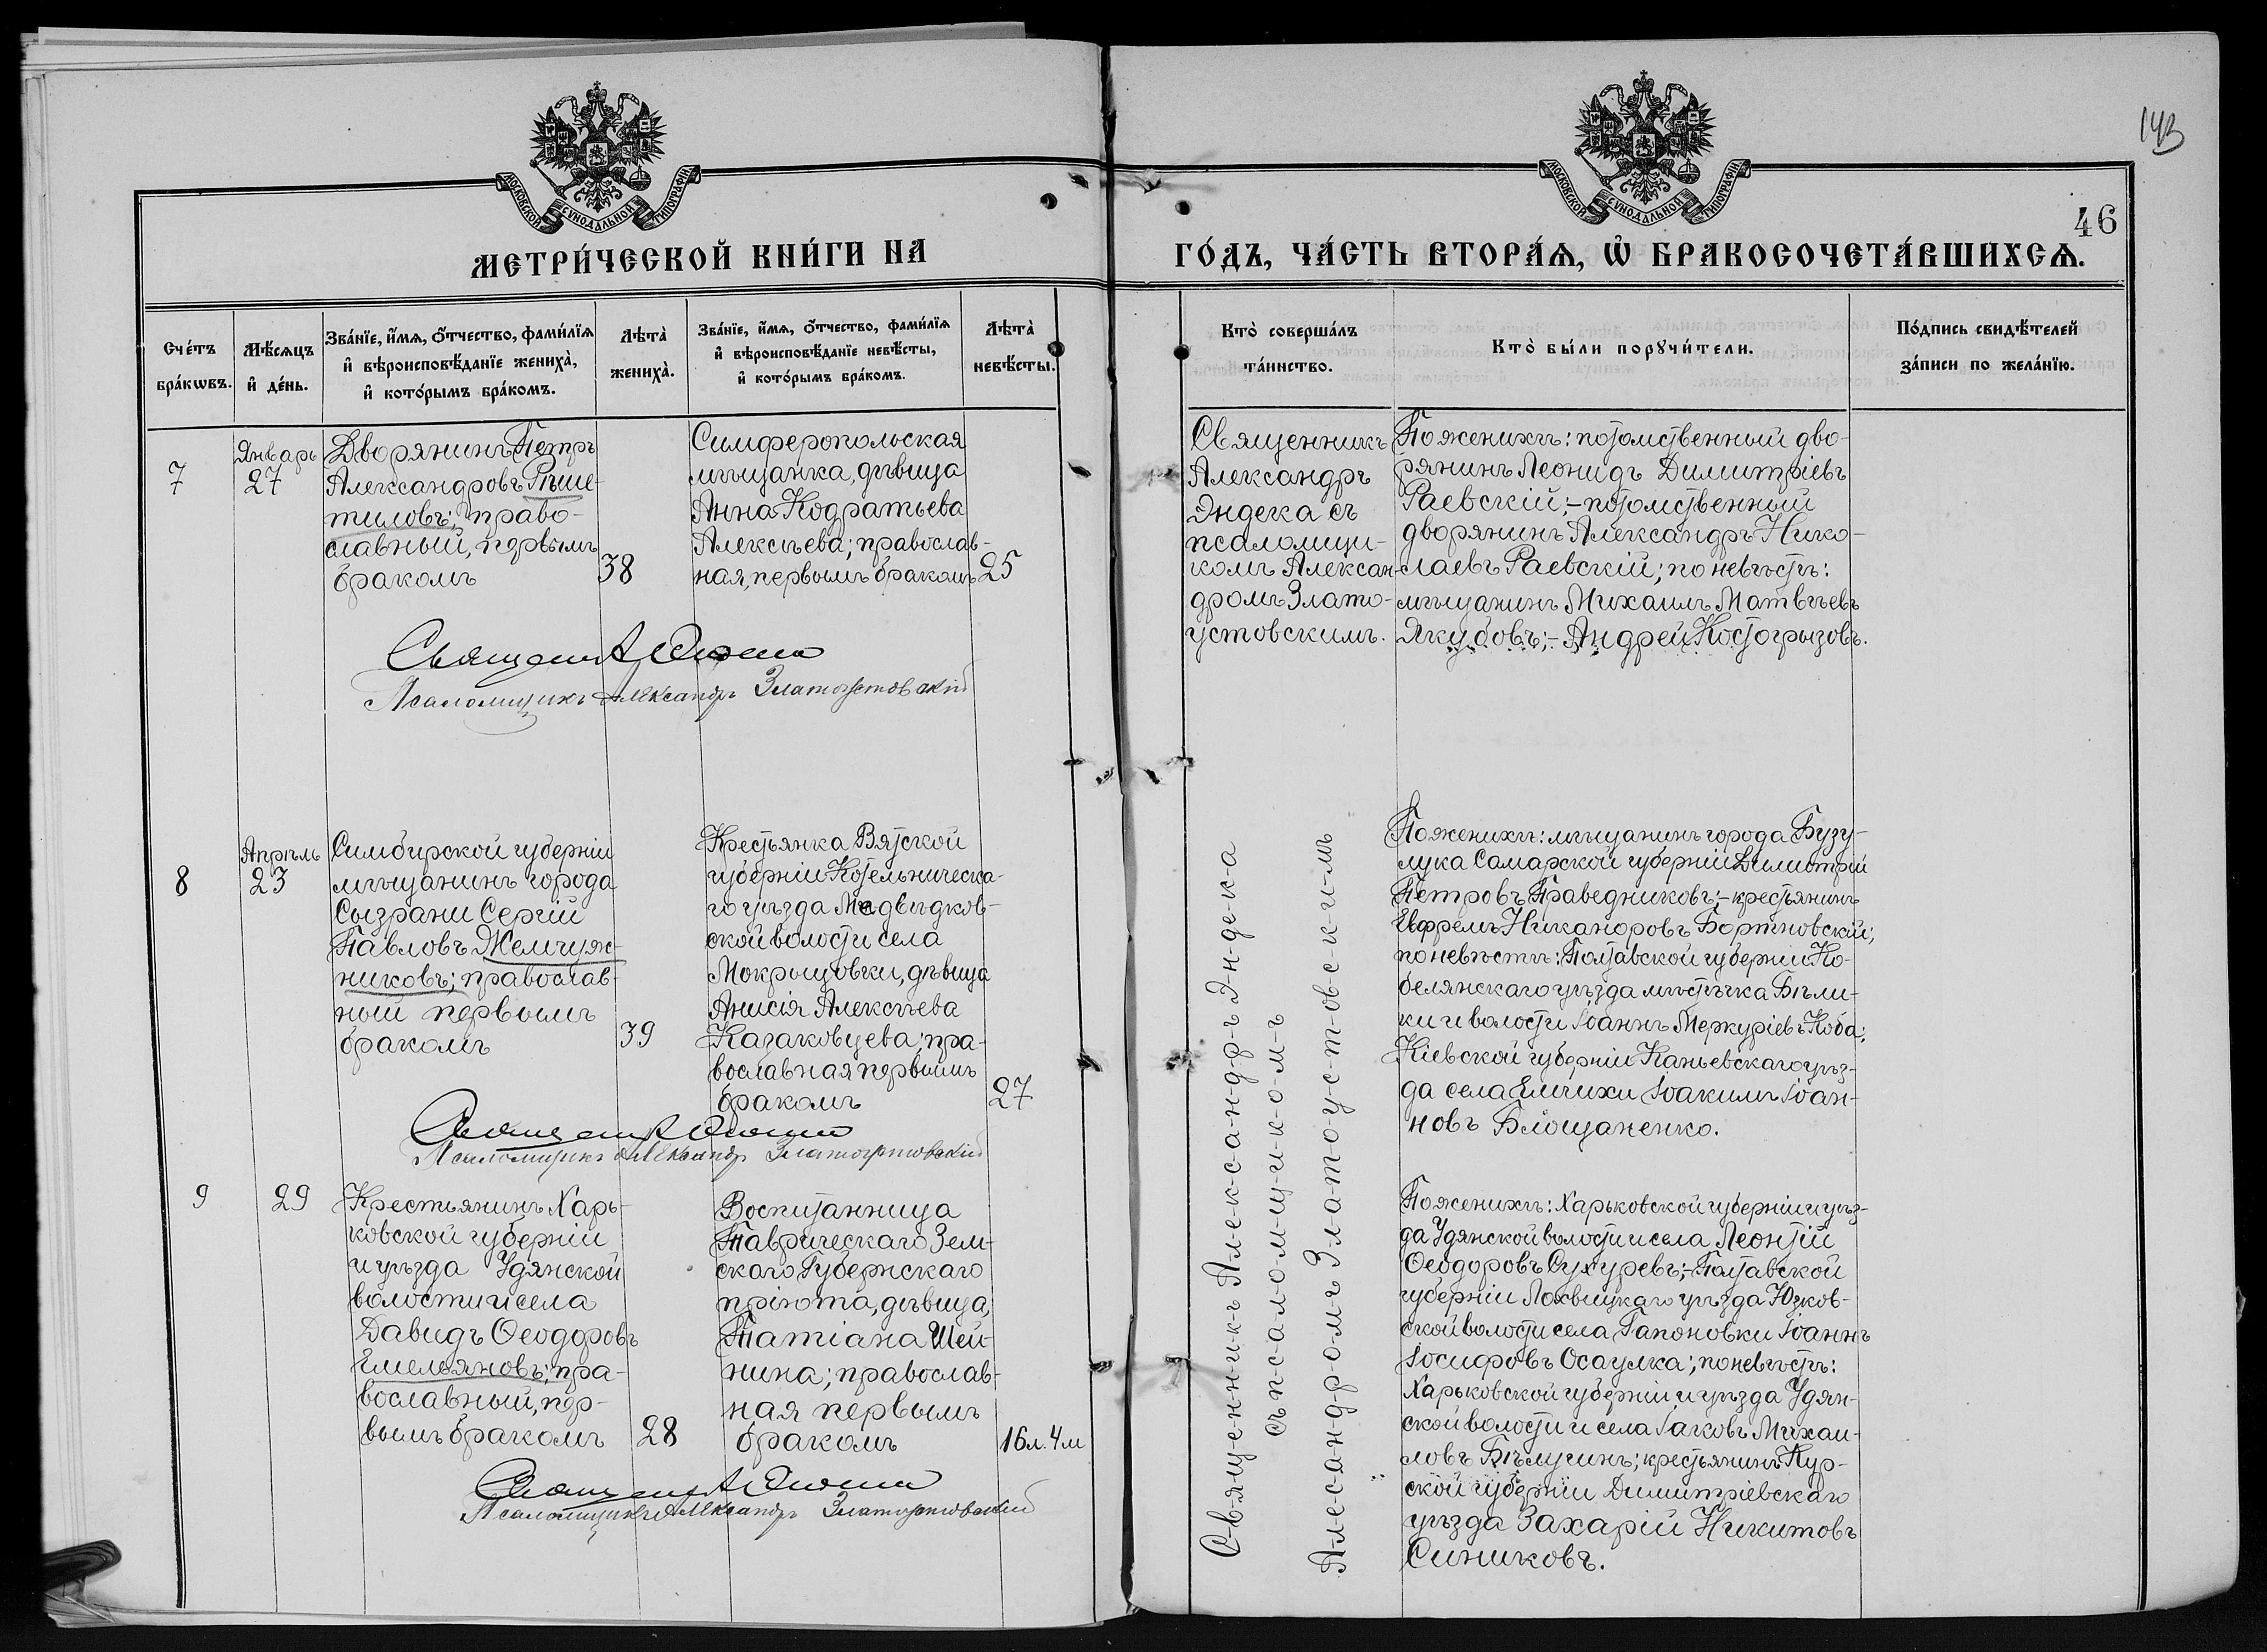 143
МОСКОВСКОЙ СѴНОДАЛЬНОЙ ТИПОГРАФІИ
МОСКОВСКОЙ СѴНОДАЛЬНОЙ ТИПОГРАФІИ
46
МЕТРИ́ЧЕСКОЙ КНИ́ГИ НА
ГО́ДЪ, ЧА́СТЬ ВТОРА́Ѧ, Ѽ БРАКОСОЧЕТА́ВШИХСѦ.
Сче́тъ
бра́кѡвъ.
Мѣ́сяцъ
и҆ де́нь.
Зва́нїе, и҆́мѧ, ѻ҆́тчество, фами́лїѧ
и҆ вѣроисповѣ́данїе жениха̀,
и҆ кото́рымъ бра́комъ.
Лѣта̀
жениха̀.
Зва́нїе, и҆́мѧ, ѻ҆́тчество, фами́лїѧ
и҆ вѣроисповѣ́данїе невѣ́сты,
и҆ кото́рымъ бра́комъ.
Лѣта̀
невѣ́сты.
Кто̀ соверша́лъ
та́инство.
Кто̀ бы́ли порꙋчи́тели.
По́дпись свидѣ́телей
за́писи по жела́нїю.
7
Январь
27
Дворянинъ Петръ
Александровъ Рѣше-
тиловъ; право-
славный, первымъ
бракомъ
38
Симферопольская
мѣщанка, дѣвица
Анна Кодратьева
Алексѣева; православ-
ная, первымъ бракомъ
25
Священникъ
Александръ
Эндека съ
псаломщи-
комъ Алексан-
дромъ Злато-
устовскимъ.
По женихѣ: потомственный дво-
рянинъ Леонидъ Димитріевъ
Раевскій;-потомственный
дворянинъ Александръ Нико-
лаевъ Раевскій; по невѣстѣ:
мѣщанинъ Михаилъ Матвѣевъ
Якубовъ;-Андрей Костогрызовъ.
Псаломщикъ Александръ Златоустовскій
8
Апрѣль
23
Симбирской губерніи
мѣщанинъ города
Сызрани Сергій
Павловъ Жемчуж-
никовъ; православ-
ный первымъ
бракомъ
39
Крестьянка Вятской
губерніи Котельническа-
го уѣзда Медвѣдков-
ской волости села
Мокрецовки, дѣвица
Анисія Алексѣева
Казаковцева; пра-
вославная первымъ
бракомъ
27
С-в-я-щ-е-н-н-и-к-ъ А-л-е-к-с-а-н-д-р-ъ Э-н-д-е-к-а
съ п-с-а-л-о-м-щ-и-к-о-м-ъ
А-л-е-с-а-н-д-р-о-м-ъ З-л-а-т-о-у-с-т-о-в-с-к-и-м-ъ
По женихѣ: мѣщанинъ города Бузу-
лука Самарской губерніи Димитрій
Петровъ Праведниковъ;-крестьянинъ
Ефремъ Никаноровъ Бортновскій;
по невѣстѣ: Полтавской губерніи Ко-
белянскаго уѣзда мѣстечка Бѣли-
ки и волости Іоаннъ Меркуріевъ Коба;
Кіевской губерніи Каневскаго уѣз-
да села Емчихи Іоакимъ Іоан-
новъ Блощаненко.
Псаломщикъ Александръ Златоустовскій
9
29
Крестьянинъ Харь-
ковской губерніи
и уѣзда Удянской
волости и села
Давидъ Ѳеодоровъ
Емельяновъ; пра-
вославный, пер-
вымъ бракомъ
28
Воспитанница
Таврическаго Зем-
скаго Губернскаго
пріюта, дѣвица,
Татіана Шей-
нина; православ-
ная первымъ
бракомъ
16 л. 4 м
По женихѣ: Харьковской губерніи и уѣз-
да Удянской волости и села Леонтій
Ѳеодоровъ Сухуревъ;-Полтавской
губерніи Лохвицкаго уѣзда Юзков-
ской волости села Гапоновки Іоаннъ
Іосифовъ Осаулка; по невѣстѣ:
Харьковской губерніи и уѣзда Удян-
ской волости и села Іаковъ Михаи-
ловъ Бѣлугинъ; крестьянинъ Кур-
ской губерніи Димитріевскаго
уѣзда Захарій Никитовъ
Синиковъ.
Псаломщикъ Александръ Златоустовскій